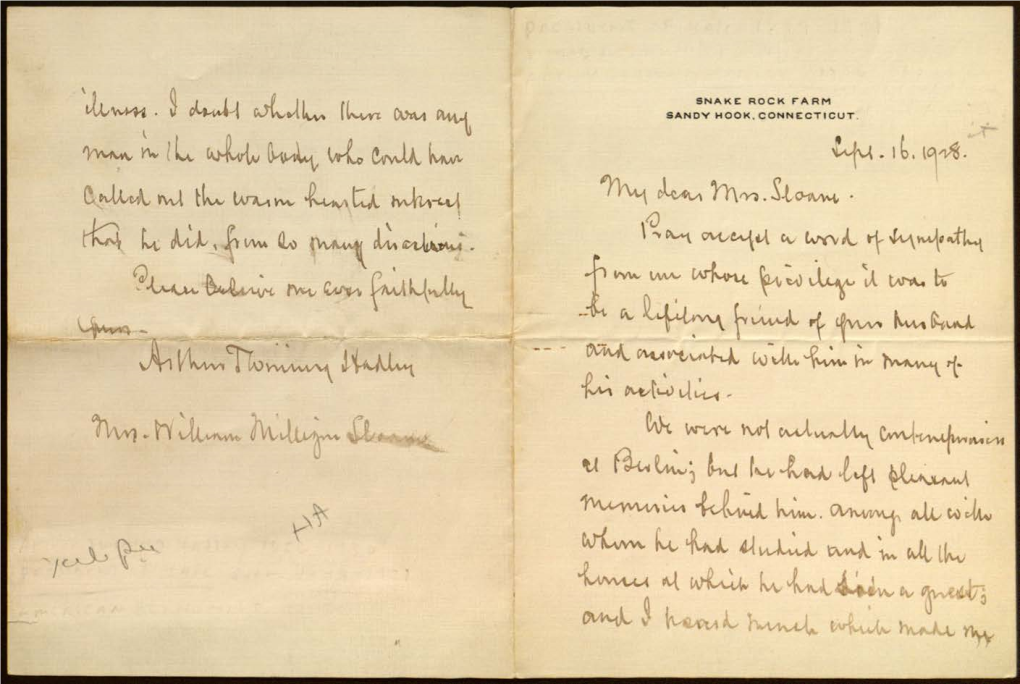 SNAKE ROCK FARM
SANDY HOOK, CONNECTICUT.
Sept. 16. 1928.
My dear Mrs. Sloane.
Pray accept a word of sympathy
from one whose privilege it was to
be a lifelong friend of your husband
and associated with him in many of
his activities.
We were not actually contemporaries
at Berlin; but he had left pleasant
memories behind him. among all with
whom he had studied and in all the
houses at which he had been a guest;
and I heard much which made me
illness. I doubt whether there was any
man in the whole body who could have
called out the warm hearted interest
that he did, from so many directions.
Please believe me ever faithfully
yours
Arthur Twining Hadley
Mrs. William Milligan Sloane